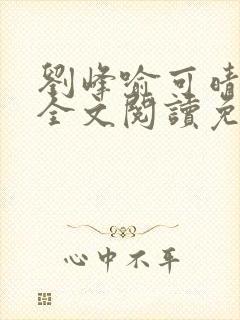 劉峰喻可晴
全文閱讀免
心中不平